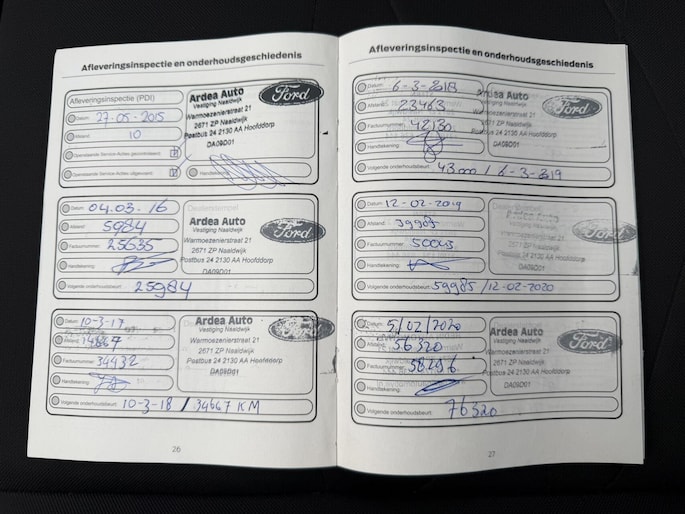 Afleveringsinspectie en onderhoudsgeschiedenis
Afleveringsinspectie (PDI)
Datum: 27-05-2015
Afstand: 10
Openstaande Service-Acties gecontroleerd:
Openstaande Service-Acties uitgevoerd:
Handtekening:
Ardea Auto
Vestiging Naaldwijk
Warmoezenierstraat 21
2671 ZP Naaldwijk
Postbus 24 2130 AA Hoofddorp
DA09D01
Ford
Datum: 04.03-16
Afstand: 5984
Factuurnummer: 25635
Handtekening:
Volgende onderhoudsbeurt: 25984
Dealerstempel
Ardea Auto
Vestiging Naaldwijk
Warmoezenierstraat 21
2671 ZP Naaldwijk
Postbus 24 2130 AA Hoofddorp
DA09D01
Ford
Datum: 10-3-17
Afstand: 14667
Factuurnummer: 34932
Handtekening:
Volgende onderhoudsbeurt: 10-3-18 / 34667 KM
Ardea Auto
Vestiging Naaldwijk
Warmoezenierstraat 21
2671 ZP Naaldwijk
Postbus 24 2130 AA Hoofddorp
DA09D01
Ford
26
Afleveringsinspectie en onderhoudsgeschiedenis
Datum: 6-3-2018
Afstand: 23463
Factuurnummer: 42130
Handtekening:
Volgende onderhoudsbeurt: 43000 / 6-3-2019
Ardea Auto
Vestiging Naaldwijk
Warmoezenierstraat 21
2671 ZP Naaldwijk
Postbus 24 2130 AA Hoofddorp
DA09D01
Ford
Datum: 12-02-2019
Afstand: 39985
Factuurnummer: 50043
Handtekening:
Volgende onderhoudsbeurt: 59985/12-02-2020
Ardea Auto
Vestiging Naaldwijk
Warmoezenierstraat 21
2671 ZP Naaldwijk
Postbus 24 2130 AA Hoofddorp
DA09D01
Ford
Datum: 5/02/2020
Afstand: 56320
Factuurnummer:
Handtekening:
Volgende onderhoudsbeurt: 76320
Ardea Auto
Vestiging Naaldwijk
Warmoezenierstraat 21
2671 ZP Naaldwijk
Postbus 24 2130 AA Hoofddorp
DA09D01
Ford
27